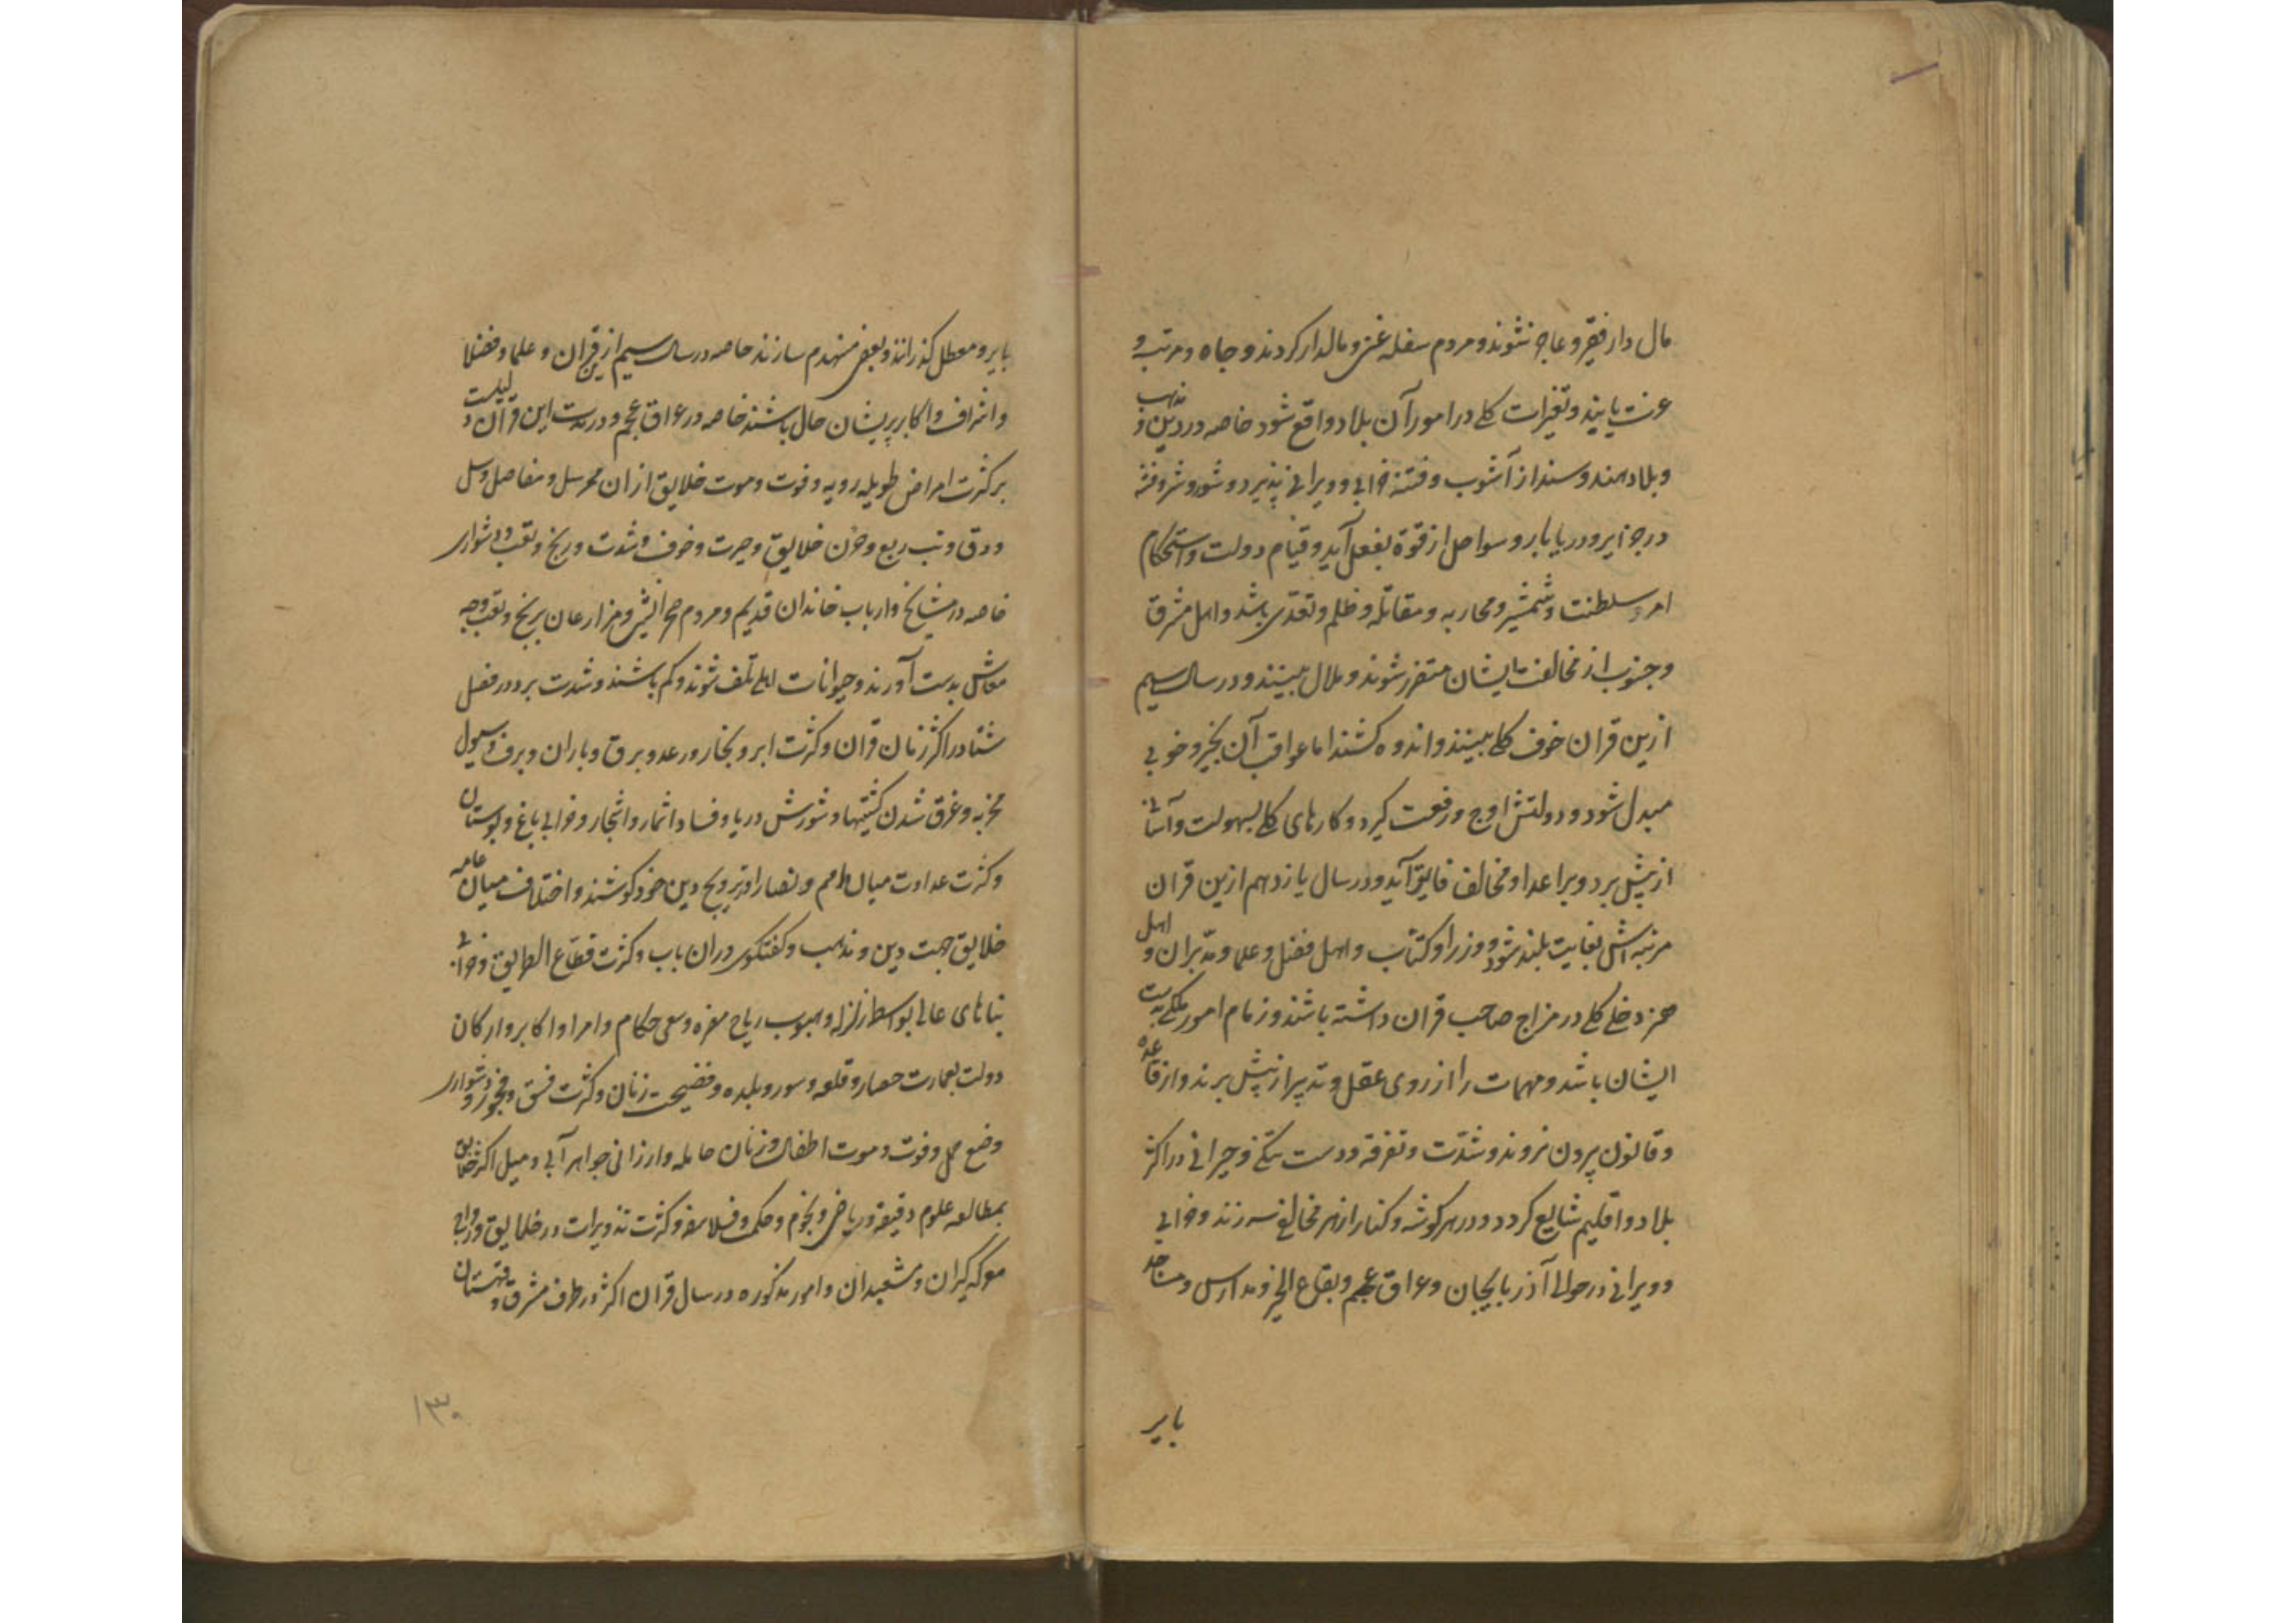 مال دار فقیر و عاجز شوند و مردم سفله غنی و مالدار کردند و جاه و مرتبه و
عزت یابند و تغیرات کلی در امور آن بلاد واقع شود خاصه در دین و مذهب
و بلاد هند و سند از آشوب و فتنه خرابی و ویرانی پذیرد و شور و شر و فتنه
در جزایر و دریابار و سواحل از قوة بفعل آید و قیام دولت و استحکام
امر سلطنت و شمشیر و محاربه و مقاتله و ظلم و تعدّی باشد و اهل مشرق
و جنوب از مخالفت ایشان متضرر شوند و ملال بینند و در سال سیم
ازین قران خوف کلی بینند و اندوه کشند اما عواقب آن بخیر و خوبی
مبدل شود و دولتش اوج و رفعت کیرد و کارهای کلی بسهولت و آسانی
از پیش برد و بر اعدا و مخالف فایق آید و در سال یازدهم ازین قران
مرتبه اش بغایت بلند شود و وزرا و کتّاب و اهل فضل و علما و مدبّران و اهل
هنر دخلی کلی در مزاج صاحب قران داشته باشند و زمام امور ملکی بدست
ایشان باشد و مهمات را از روی عقل و تدبیر از پیش برند و از قاعده
و قانون بیرون نروند و شدّت و تفرقه و دست تنکی و حیرانی در اکثر
بلاد و اقلیم شایع کردد و در هر کوشه و کنار از هر مخالفی سر زند و خرابی
و ویرانی در حوالی آذربایجان و عراق عجم و بقاع الخیر و مدارس و مساجد
بایر
بایر و معطل کذرانند و بعضی منهدم سازند خاصه در سال سیم ازین قران و علما و فضلا
و اشراف و اکابر پریشان حال باشند خاصه در عراق عجم و در مدت این قران دلیلست
بر کثرت امراض طویله رویه و فوت و موت خلایق از آن ممر سل و مفاصل و سل
و دق و تب ربع و حزن خلایق و حیرت و خوف و شدت و رنج و تعب و دشواری
خاصه در مشایخ و ارباب خاندان قدیم و مردم صحرانشین و مزارعان برنج و تعب وجه
معاش بدست آورند و حیوانات اهلی تلف شوند و کم باشند و شدت برد در فصل
شتا در اکثر زمان قران و کثرت ابر و بخار و رعد و برق و باران و برف و سیول
مخربه و غرق شدن کشتیها و شورش دریا و فساد اثمار و اشجار و خرابی باغ و بوستان
و کثرت عداوت میان امم و نصارا و ترویج دین خود کوشند و اختلاف میان عامه
خلایق جهت دین و مذهب و کفتکوی در آن باب و کثرت قطّاع الطریق و خرابی
بناهای عالی بواسطه زلزله و هبوب ریاح مضره و سعی حکام و امرا و اکابر و ارکان
دولت بعمارت حصار و قلعه و سور و بلده و فضیحت زنان و کثرت فسق و فجور و دشواری
وضع حمل و فوت و موت اطفال و زنان حامله و ارزانی جواهر آبی و میل اکثر خلایق
بمطالعه علوم دقیقه و ریاضی و نجوم و حکمت و فلاسفه و کثرت تزویرات در خلایق و خرابی
معرکه کیران و مشعبدان و امور مذکوره در سال قران اکثر در طرف مشرق و قهستان
۱۳۰